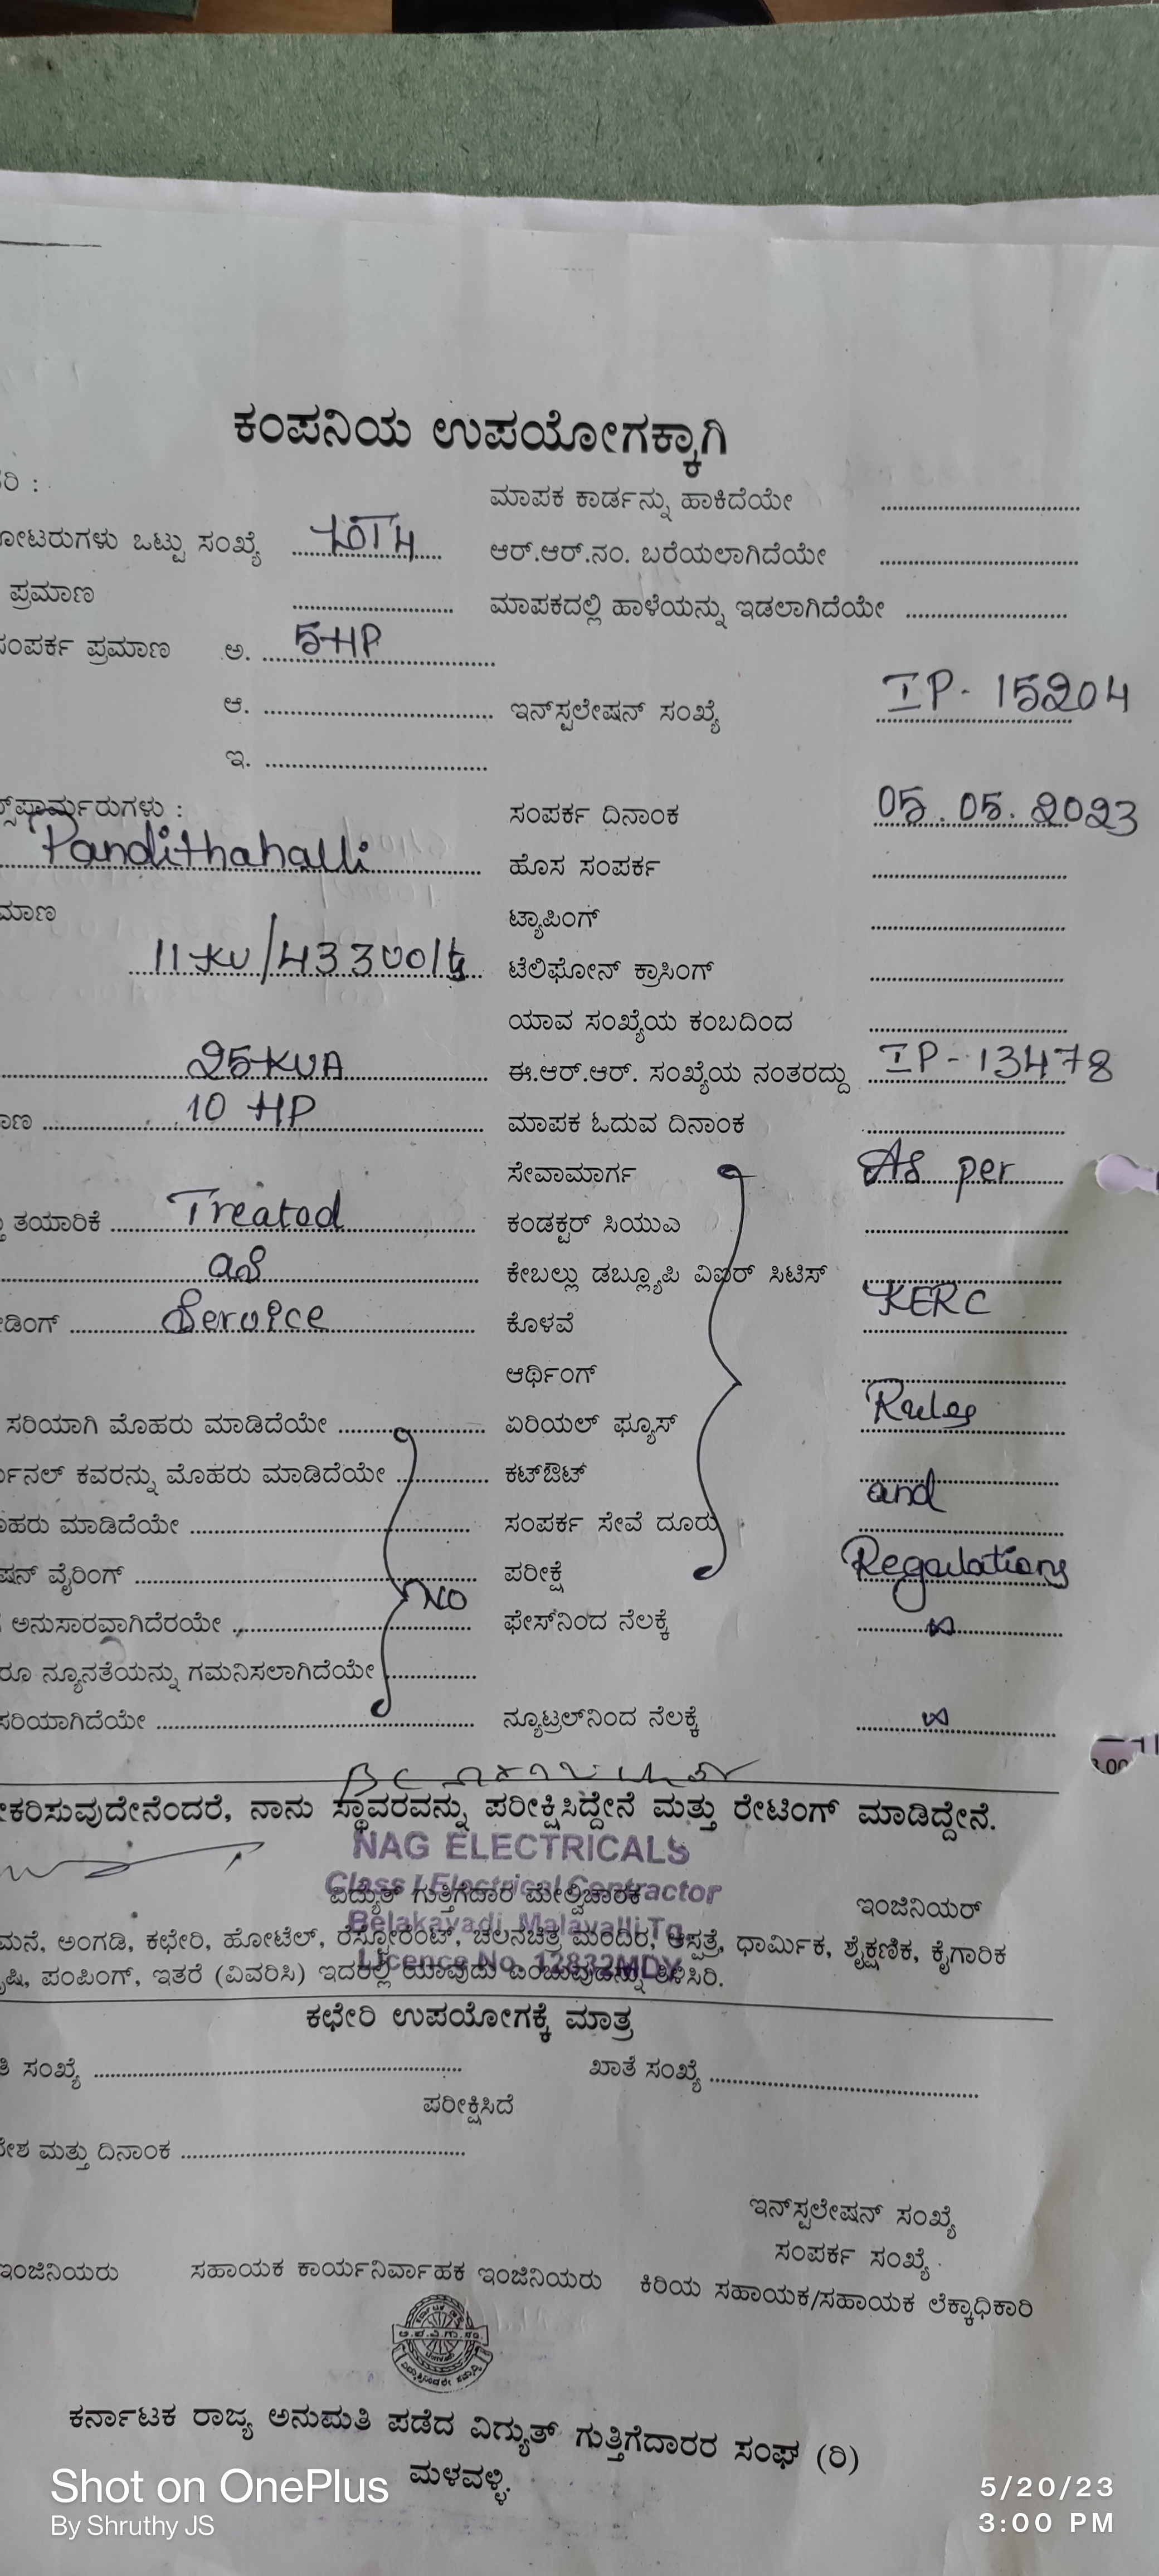 ಕಂಪನಿಯ ಉಪಯೋಗಕ್ಕಾಗಿ
ರಿ :
ಮಾಪಕ ಕಾರ್ಡನ್ನು ಹಾಕಿದೆಯೇ
ೋಟರುಗಳು ಒಟ್ಟು ಸಂಖ್ಯೆ
ಆರ್.ಆರ್.ನಂ. ಬರೆಯಲಾಗಿದೆಯೇ
ಪ್ರಮಾಣ
ಮಾಪಕದಲ್ಲಿ ಹಾಳೆಯನ್ನು ಇಡಲಾಗಿದೆಯೇ
ಸಂಪರ್ಕ ಪ್ರಮಾಣ ಅ. 5HP
ಆ.
ಇನ್‌ಸ್ಟಲೇಷನ್ ಸಂಖ್ಯೆ IP- 15204
ಇ.
ಸ್‌ಫಾರ್ಮರುಗಳು :
ಸಂಪರ್ಕ ದಿನಾಂಕ 05.05.2023
Pandithahalli
ಹೊಸ ಸಂಪರ್ಕ
ಮಾಣ
ಟ್ಯಾಪಿಂಗ್
11KV/433volts
ಟೆಲಿಫೋನ್ ಕ್ರಾಸಿಂಗ್
ಯಾವ ಸಂಖ್ಯೆಯ ಕಂಬದಿಂದ
25KVA
ಈ.ಆರ್.ಆರ್. ಸಂಖ್ಯೆಯ ನಂತರದ್ದು IP-13478
ಾಣ 10 HP
ಮಾಪಕ ಓದುವ ದಿನಾಂಕ
ಸೇವಾಮಾರ್ಗ As per
ತಯಾರಿಕೆ Treated
ಕಂಡಕ್ಟರ್ ಸಿಯುಎ
as
ಕೇಬಲ್ಲು ಡಬ್ಲ್ಯೂಪಿ ವಿಐರ್ ಸಿಟಿಸ್
KERC
ಡಿಂಗ್ Service
ಕೊಳವೆ
ಆರ್ಥಿಂಗ್
Rules
ಸರಿಯಾಗಿ ಮೊಹರು ಮಾಡಿದೆಯೇ
ಏರಿಯಲ್ ಫ್ಯೂಸ್
ರ್ಮಿನಲ್ ಕವರನ್ನು ಮೊಹರು ಮಾಡಿದೆಯೇ
ಕಟ್‌ಔಟ್
and
ೊಹರು ಮಾಡಿದೆಯೇ
ಸಂಪರ್ಕ ಸೇವೆ ದೂರು
ಷನ್ ವೈರಿಂಗ್
ಪರೀಕ್ಷೆ Regulations
NO
ಅನುಸಾರವಾಗಿದೆರಯೇ
ಫೇಸ್‌ನಿಂದ ನೆಲಕ್ಕೆ ∞
ರೂ ನ್ಯೂನತೆಯನ್ನು ಗಮನಿಸಲಾಗಿದೆಯೇ
ಸರಿಯಾಗಿದೆಯೇ
ನ್ಯೂಟ್ರಲ್‌ನಿಂದ ನೆಲಕ್ಕೆ ∞
ೀಕರಿಸುವುದೇನೆಂದರೆ, ನಾನು ಸ್ಥಾವರವನ್ನು ಪರೀಕ್ಷಿಸಿದ್ದೇನೆ ಮತ್ತು ರೇಟಿಂಗ್ ಮಾಡಿದ್ದೇನೆ.
NAG ELECTRICALS
Class I Electrical Contractor
ವಿದ್ಯುತ್ ಗುತ್ತಿಗೆದಾರ ಮೇಲ್ವಿಚಾರಕ
ಇಂಜಿನಿಯರ್
Belakavadi, Malavalli Tq.
ಮನೆ, ಅಂಗಡಿ, ಕಛೇರಿ, ಹೋಟೆಲ್, ರೆಸ್ಟೋರೆಂಟ್, ಚಲನಚಿತ್ರ ಮಂದಿರ, ಆಸ್ಪತ್ರೆ, ಧಾರ್ಮಿಕ, ಶೈಕ್ಷಣಿಕ, ಕೈಗಾರಿಕ
Licence No. 12832MDY
ೃಷಿ, ಪಂಪಿಂಗ್, ಇತರೆ (ವಿವರಿಸಿ) ಇದರಲ್ಲಿ ಯಾವುದು ಎಂಬುವುದನ್ನು ತಿಳಿಸಿರಿ.
ಕಛೇರಿ ಉಪಯೋಗಕ್ಕೆ ಮಾತ್ರ
ತಿ ಸಂಖ್ಯೆ
ಖಾತೆ ಸಂಖ್ಯೆ
ಪರೀಕ್ಷಿಸಿದೆ
ದೇಶ ಮತ್ತು ದಿನಾಂಕ
ಇನ್‌ಸ್ಟಲೇಷನ್ ಸಂಖ್ಯೆ
ಸಂಪರ್ಕ ಸಂಖ್ಯೆ
ಇಂಜಿನಿಯರು ಸಹಾಯಕ ಕಾರ್ಯನಿರ್ವಾಹಕ ಇಂಜಿನಿಯರು ಕಿರಿಯ ಸಹಾಯಕ/ಸಹಾಯಕ ಲೆಕ್ಕಾಧಿಕಾರಿ
ಕರ್ನಾಟಕ ರಾಜ್ಯ ಅನುಮತಿ ಪಡೆದ ವಿದ್ಯುತ್ ಗುತ್ತಿಗೆದಾರರ ಸಂಘ (ರಿ)
ಮಳವಳ್ಳಿ.
Shot on OnePlus
By Shruthy JS
5/20/23
3:00 PM